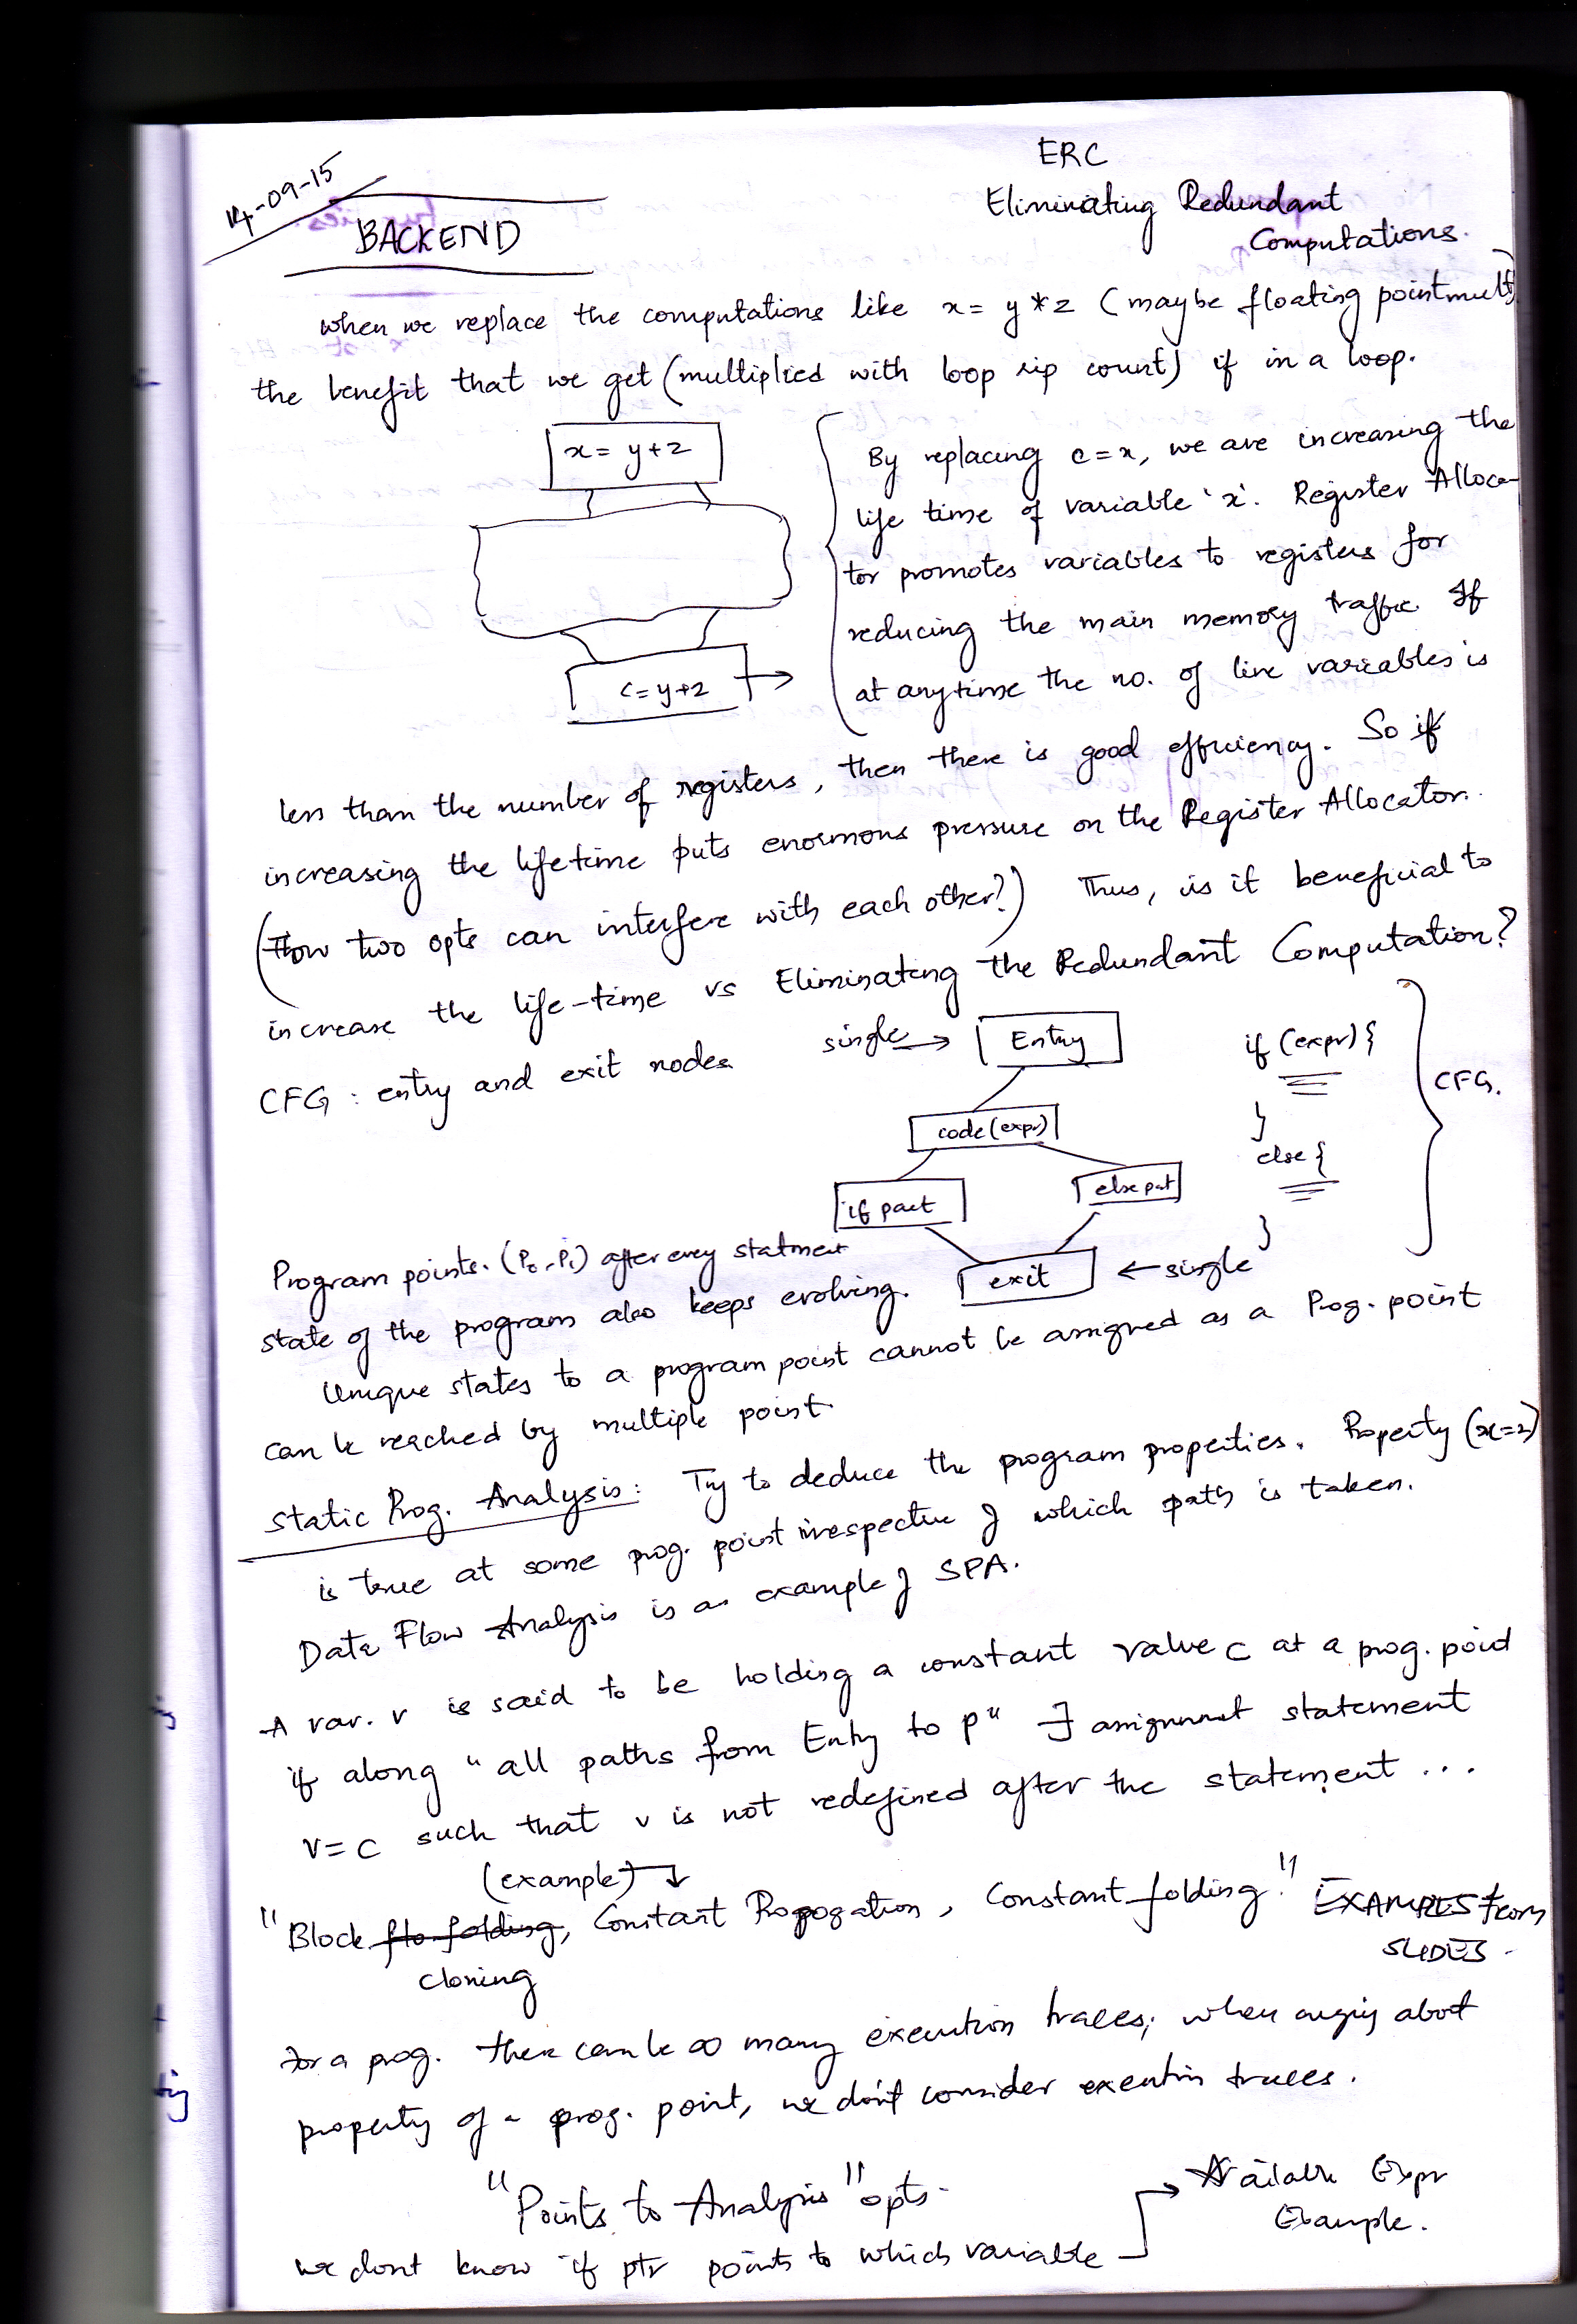 14-09-15
BACKEND
ERC
Eliminating Redundant
Computations.
when we replace the computations like x = y * z (maybe floating point mult)
the benefit that we get (multiplied with loop rip count) if in a loop.
x = y+z
c = y+z
By replacing c = x, we are increasing the
life time of variable 'x'. Register Alloca-
tor promotes variables to registers for
reducing the main memory traffic. If
at anytime the no. of live variables is
less than the number of registers, then there is good efficiency. So if
increasing the lifetime puts enormous pressure on the Register Allocator.
(How two opts can interfere with each other?) Thus, is it beneficial to
increase the life-time vs Eliminating the Redundant Computation?
CFG : entry and exit nodes
single → Entry
code (expr)
if part
else part
exit ← single
if (expr) {
}
else {
}
CFG.
Program points. (P0, P1) after every statment
state of the program also keeps evolving.
Unique states to a program point cannot be assigned as a Prog. point
can be reached by multiple point.
Static Prog. Analysis: Try to deduce the program properties. Property (x=2)
is true at some prog. point irrespective of which path is taken.
Data Flow Analysis is an example of SPA.
A var. v is said to be holding a constant value c at a prog. point
if along "all paths from Entry to p" ∃ assignment statement
v = c such that v is not redefined after the statement ...
(example) ↓
"Block folding, Constant Propogation, Constant folding." EXAMPLES from
cloning
SLIDES.
For a prog. there can be ∞ many execution traces; when about
property of a prog. point, we don't consider execution traces.
"Points to Analysis" opts.
we dont know if ptr points to which variable → Available Expr
Example.